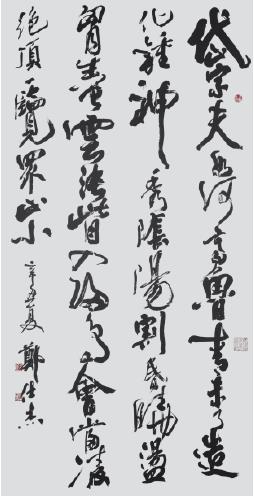 岱宗夫如何齊魯青未了造
化鍾神秀陰陽割昏曉盪
胷生曾雲決眥入歸鳥會當凌
絕頂一覽眾山小 辛丑夏 鄭仕杰